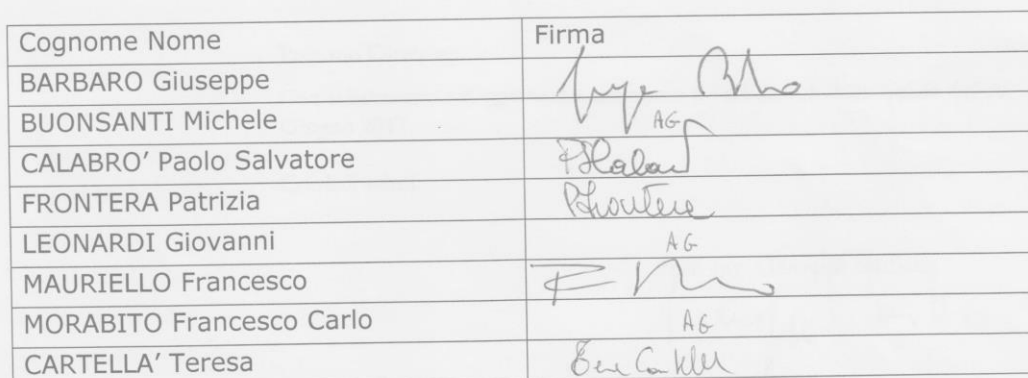 Cognome Nome Firma
BARBARO Giuseppe
BUONSANTI Michele AG
CALABRO' Paolo Salvatore
FRONTERA Patrizia PFrontera
LEONARDI Giovanni AG
MAURIELLO Francesco
MORABITO Francesco Carlo AG
CARTELLA' Teresa